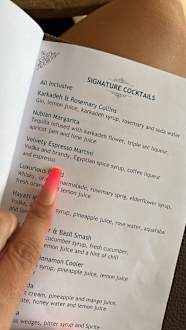 SIGNATURE COCKTAILS
All Inclusive
Karkadeh & Rosemary Collins
Gin, lemon juice, karkadeh syrup, rosemary and soda water
Nubian Margarita
Tequila infused with karkadeh flower, triple sec liqueur,
apricot jam and lime juice
Velvety Espresso Martini
Vodka and brandy, Egyptian spice syrup, coffee liqueur
and espresso
Luxurious
Whisky, marmalade, rosemary sprig, elderflower syrup,
fresh juice
syrup, pineapple juice, rose water, aquafaba
& Basil Smash
cucumber syrup, fresh cucumber,
juice and a hint of chili
Cinnamon Cooler
syrup, pineapple juice, lemon juice
cream, pineapple and mango juice,
honey water and lemon juice
wedges, bitter syrup and Sprite